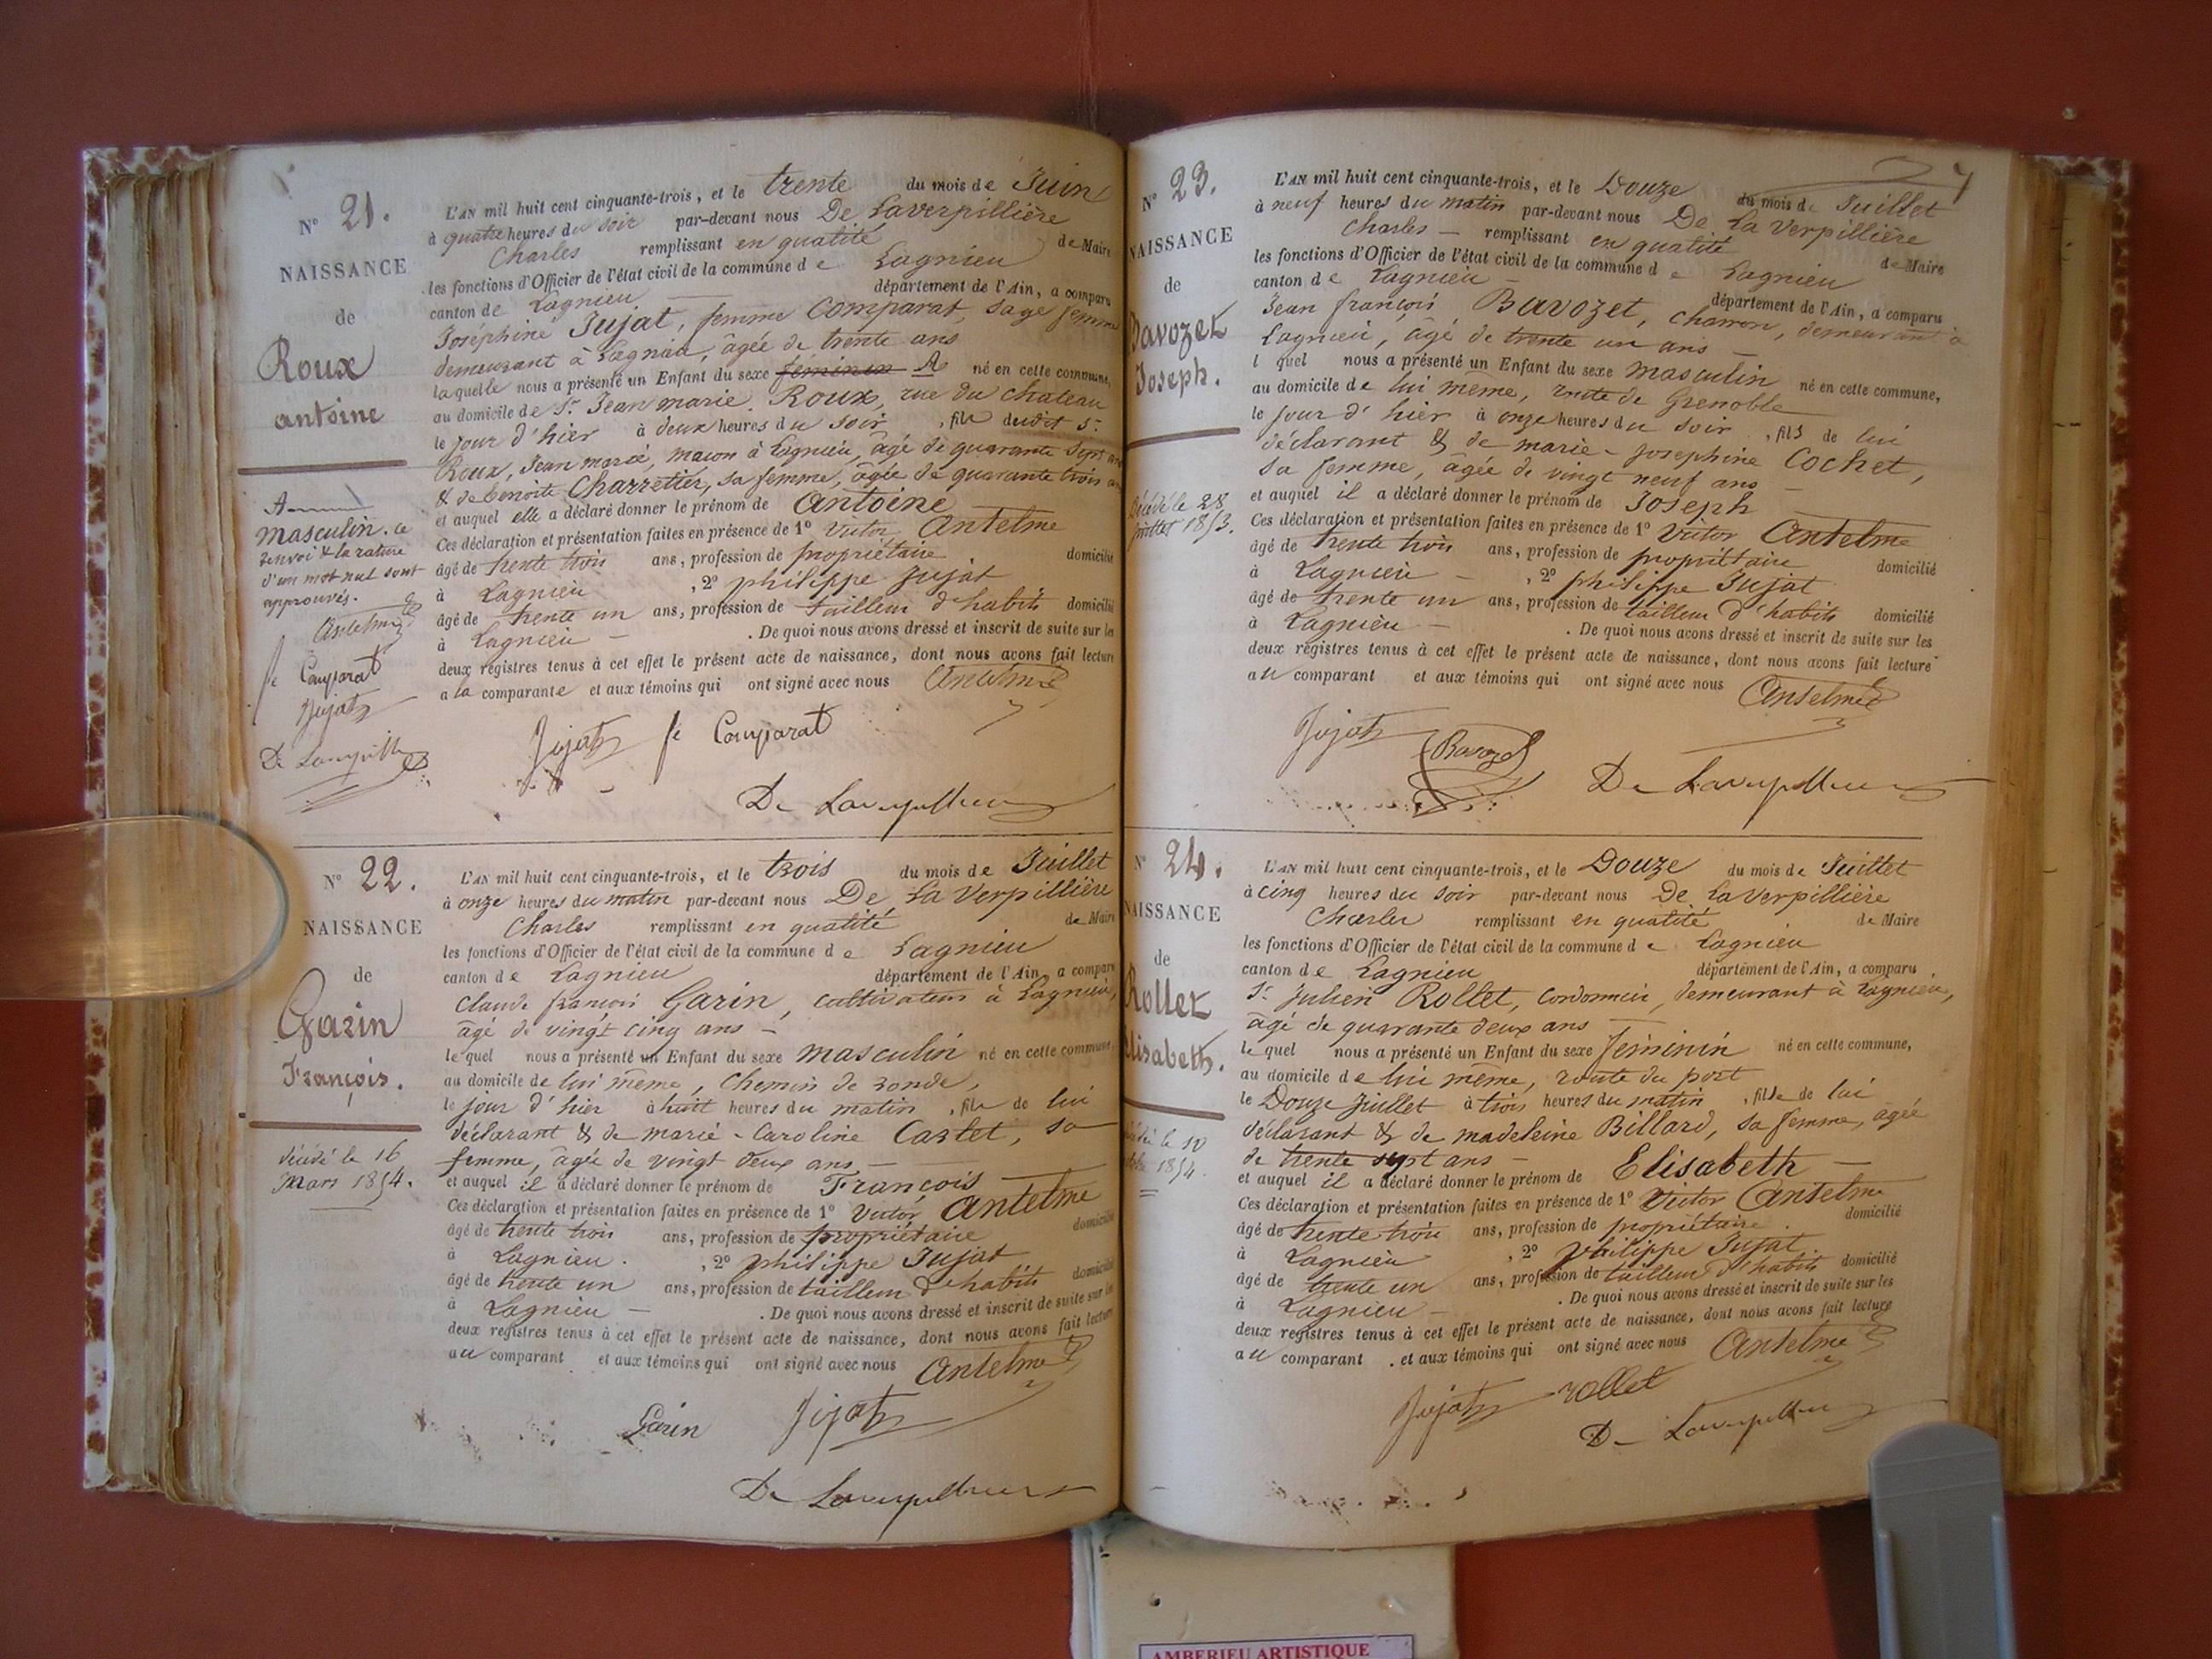 N° 21.
NAISSANCE
de
Roux
antoine
A
masculin. Ce
renvoi & la rature
d'un mot nul sont
approuvés.
Antelme
fe Comparat
Jujat
De Laverpillière
L'AN mil huit cent cinquante-trois, et le trente du mois de Juin
à quatre heures du soir par-devant nous De Laverpillière
Charles remplissant en qualité de Maire
les fonctions d'Officier de l'état civil de la commune de Lagnieu
canton de Lagnieu département de l'Ain, a comparu
Joséphine Jujat, femme Comparat, sage femme
demeurant à Lagnieu, âgée de trente ans
laquelle nous a présenté un Enfant du sexe féminin A né en cette commune,
au domicile de Sr. Jean marie Roux, rue du chateau
le jour d'hier à deux heures du soir, fils dudit Sr.
Roux, Jean marie, maçon à Lagnieu, âgé de quarante sept ans
& de benoite Charretier, sa femme, âgée de quarante trois ans
et auquel elle a déclaré donner le prénom de Antoine
Ces déclaration et présentation faites en présence de 1° Victor Antelme
âgé de trente trois ans, profession de propriétaire domicilié
à Lagnieu, 2° philippe Jujat
âgé de trente un ans, profession de tailleur d'habits domicilié
à Lagnieu. De quoi nous avons dressé et inscrit de suite sur les
deux registres tenus à cet effet le présent acte de naissance, dont nous avons fait lecture
a la comparante et aux témoins qui ont signé avec nous Antelme
Jujat fe Comparat
De Laverpillière
N° 22.
NAISSANCE
de
Garin
François.
décédé le 16
Mars 1854.
L'AN mil huit cent cinquante-trois, et le trois du mois de Juillet
à onze heures du matin par-devant nous De La Verpillière
Charles remplissant en qualité de Maire
les fonctions d'Officier de l'état civil de la commune de Lagnieu
canton de Lagnieu département de l'Ain, a comparu
Claude françois Garin, cultivateur à Lagnieu,
âgé de vingt cinq ans
le quel nous a présenté un Enfant du sexe masculin né en cette commune,
au domicile de lui même, Chemin de ronde,
le jour d'hier à huit heures du matin, fils de lui
déclarant & de marie-Caroline Castet, sa
femme, âgée de vingt deux ans
et auquel il a déclaré donner le prénom de François
Ces déclaration et présentation faites en présence de 1° Victor Antelme
âgé de trente trois ans, profession de propriétaire domicilié
à Lagnieu. , 2° philippe Jujat
âgé de trente un ans, profession de tailleur d'habits domicilié
à Lagnieu. De quoi nous avons dressé et inscrit de suite sur les
deux registres tenus à cet effet le présent acte de naissance, dont nous avons fait lecture
au comparant et aux témoins qui ont signé avec nous Antelme
Garin Jujat
De Laverpillière
7
N° 23.
NAISSANCE
de
Bavozet
Joseph.
décédé le 28
juillet 1853.
L'AN mil huit cent cinquante-trois, et le Douze du mois de Juillet
à neuf heures du matin par-devant nous De La Verpillière
Charles remplissant en qualité de Maire
les fonctions d'Officier de l'état civil de la commune de Lagnieu
canton de Lagnieu département de l'Ain, a comparu
Jean françois Bavozet, charron, demeurant à
Lagnieu, âgé de trente un ans
l quel nous a présenté un Enfant du sexe masculin né en cette commune,
au domicile de lui même, route de Grenoble
le jour d'hier à onze heures du soir, fils de lui
déclarant & de marie-josephine Cochet,
sa femme, âgée de vingt neuf ans
et auquel il a déclaré donner le prénom de Joseph
Ces déclaration et présentation faites en présence de 1° Victor Antelme
âgé de trente trois ans, profession de propriétaire domicilié
à Lagnieu, 2° philippe Jujat
âgé de trente un ans, profession de tailleur d'habits domicilié
à Lagnieu. De quoi nous avons dressé et inscrit de suite sur les
deux registres tenus à cet effet le présent acte de naissance, dont nous avons fait lecture
au comparant et aux témoins qui ont signé avec nous Antelme
Jujat Bavozet
De Laverpillière
N° 24.
NAISSANCE
de
Rollet
Elisabeth.
le 10
1854.
L'AN mil huit cent cinquante-trois, et le Douze du mois de Juillet
à cinq heures du soir par-devant nous De La Verpillière
Charles remplissant en qualité de Maire
les fonctions d'Officier de l'état civil de la commune de Lagnieu
canton de Lagnieu département de l'Ain, a comparu
Sr. Julien Rollet, Cordonnier, demeurant à Lagnieu,
âgé de quarante deux ans
le quel nous a présenté un Enfant du sexe féminin né en cette commune,
au domicile de lui même, route du port
le Douze Juillet à trois heures du matin, fille de lui
déclarant & de madeleine Billard, sa femme, âgée
de trente sept ans
et auquel il a déclaré donner le prénom de Elisabeth
Ces déclaration et présentation faites en présence de 1° Victor Antelme
âgé de trente trois ans, profession de propriétaire domicilié
à Lagnieu, 2° philippe Jujat
âgé de trente un ans, profession de tailleur d'habits domicilié
à Lagnieu. De quoi nous avons dressé et inscrit de suite sur les
deux registres tenus à cet effet le présent acte de naissance, dont nous avons fait lecture
au comparant. et aux témoins qui ont signé avec nous Antelme
Jujat rollet
De Laverpillière
AMBERIEU ARTISTIQUE